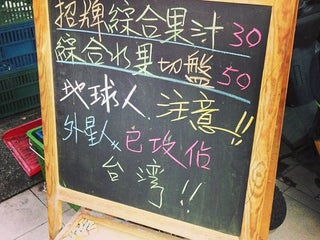 招牌綜合果汁30
綜合水果切盤50
地球人注意!!
外星人已攻佔
台灣!!